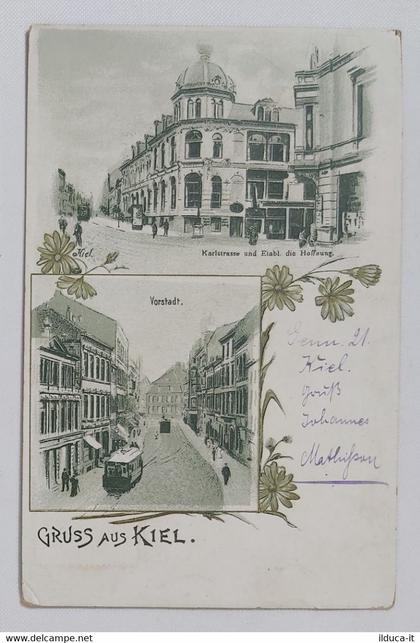 Kiel.
Karlstrasse und Etabl. die Hoffnung.
Vorstadt.
21.
Kiel.
Gruß
Johannes
Mathißon
GRUSS AUS KIEL.
© www.delcampe.net
ilduca-it